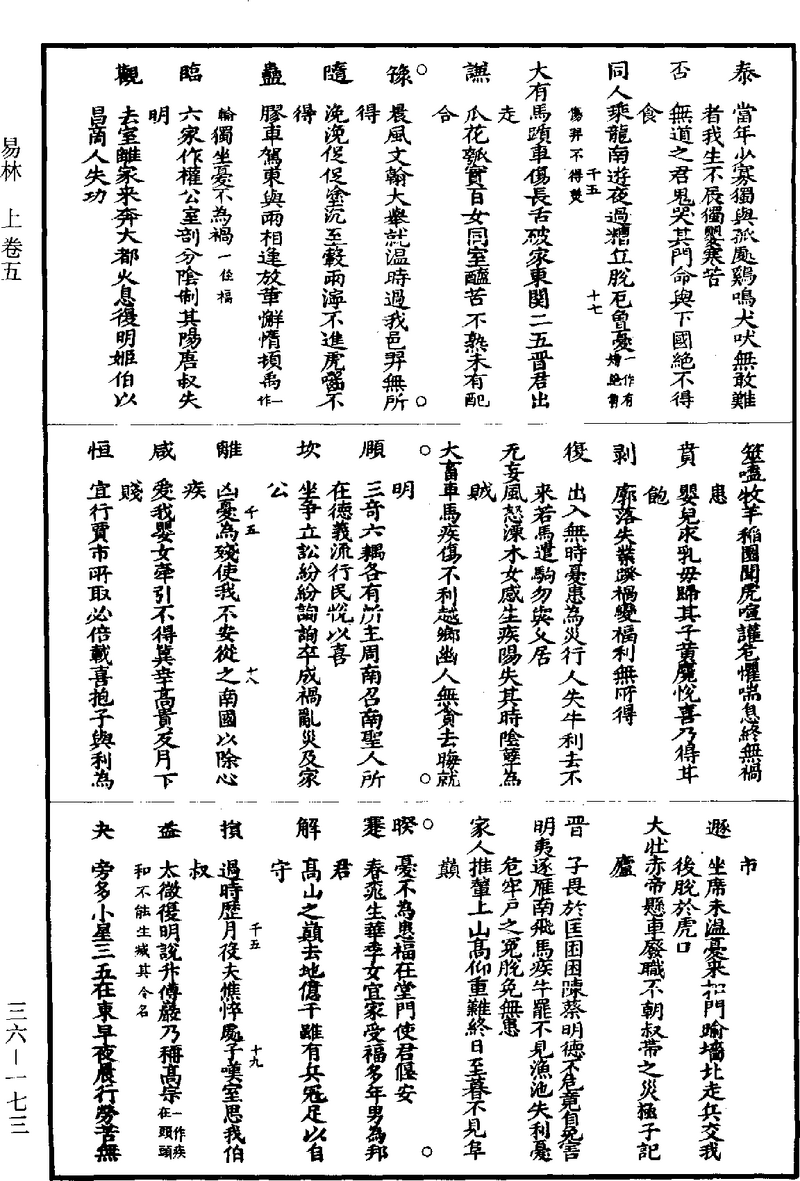 泰 當年少寡獨與孤處鷄鳴犬吠無敢難
者我生不辰獨嬰寒苦
否 無道之君鬼哭其門命與下國絶不得
食
同人乘龍南遊夜過糟丘脫厄曾憂一作有
傷羿不得
千五 十七
大有馬躓車傷長舌破家東関二五晋君出
走
謙 瓜花瓠實百女同室醯苦不熟未有配
合
豫 晨風文翰大舉就温時過我邑羿無所
得
隨 浼浼促促塗泥至轂雨濘不進虎囓不
得
蠱 膠車駕東與雨相逢放華懈惰頓禹一作
輪獨坐憂不為禍一作福
臨 六家作權公室剖分陰制其陽唐叔失
明
觀 去室離家来奔大都火息復明姬伯以
昌商人失功
筮嗑牧羊稻園聞虎喧讙危懼喘息終無禍
患
賁 嬰兒求乳毋歸其子黄麑悅喜乃得其
飽
剥 廓落失業跌禍變福利無所得
復 出入無時憂患為災行人失牛利去不
来若馬遣駒勿與乆居
无妄風怒漂木女感生疾陽失其時陰孽為
賊
大畜車馬疾傷不利越鄉幽人無貪去晦就
明
頤 三奇六耦各有所主周南召南聖人所
在德義流行民悅以喜
坎 坐争立訟紛紛詾詾卒成禍亂災及家
公
千五 十八
離 凶憂為殘使我不安從之南國以除心
疾
咸 愛我嬰女牽引不得冀幸髙貴反月下
賤
恒 宜行賈市所取必倍載喜抱子與利為
市
遯 坐席未温憂来扣門踰墻北走兵交我
後脫於虎口
大壯赤帝懸車廢職不朝叔帶之災極子記
廬
晋 子畏於匡困困陳蔡明德不危竟自免害
明夷逐雁南飛馬疾牛罷不見漁池失利憂
危牢戶之寃脫免無患
家人推輦上山髙仰重難終日至暮不見阜
巔
睽 憂不為患福在堂門使君偃安
蹇 春飛生華季女宜家受福多年男為邦
君
解 髙山之巔去地億千雖有兵宼足以自
守
千五 十九
損 過時歷月役夫憔悴處子嘆室思我伯
叔
益 太微復明說升傅嚴乃稱髙宗一作疾在頭頭
和不能生滅其令名
夬 旁多小星三五在東早夜晨行勞苦無
易林 上卷五
三六—一七三